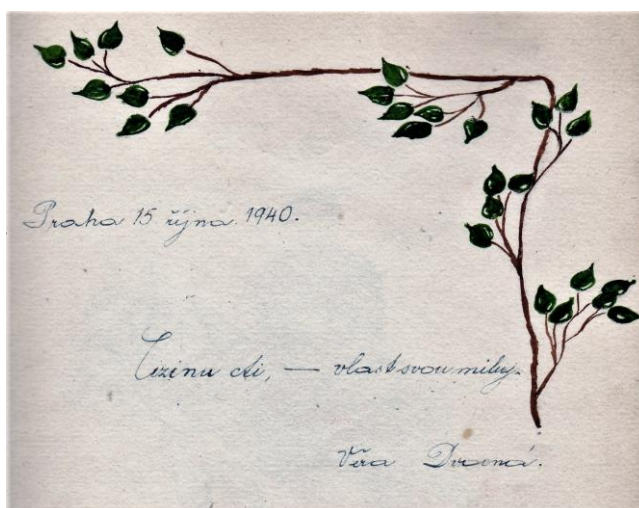 Praha 15 října. 1940.
Cizinu cti, — vlast svou miluj.
Věra